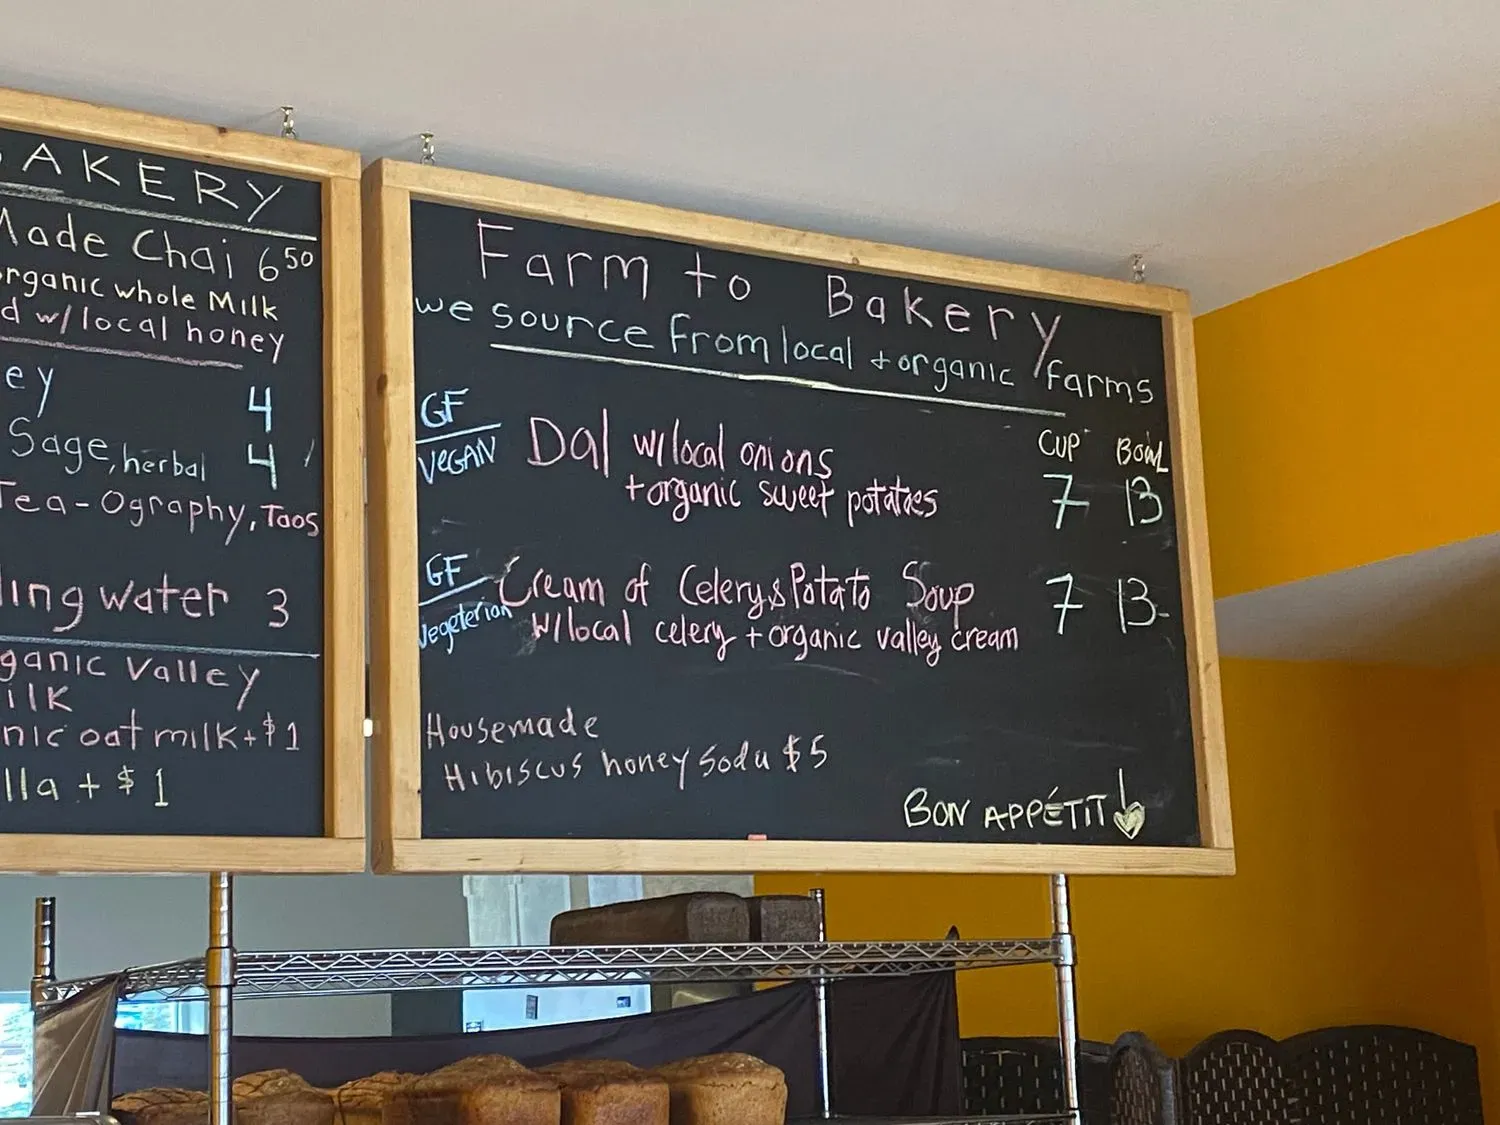 AKERY
Made Chai 6.50
organic whole Milk
d w/ local honey
ey 4
Sage, herbal 4
Tea-Ography, Taos
ling water 3
ganic Valley
ilk
nic oat milk + $1
lla + $1
Farm to Bakery
we source from local + organic farms
CUP BOWL
GF
VEGAN
Dal w/ local onions
+ organic sweet potatoes
7 13
GF
Vegeterian
Cream of Celery & Potato Soup
w/ local celery + organic valley cream
7 13-
Housemade
Hibiscus honey soda $5
BON APPÉTIT!